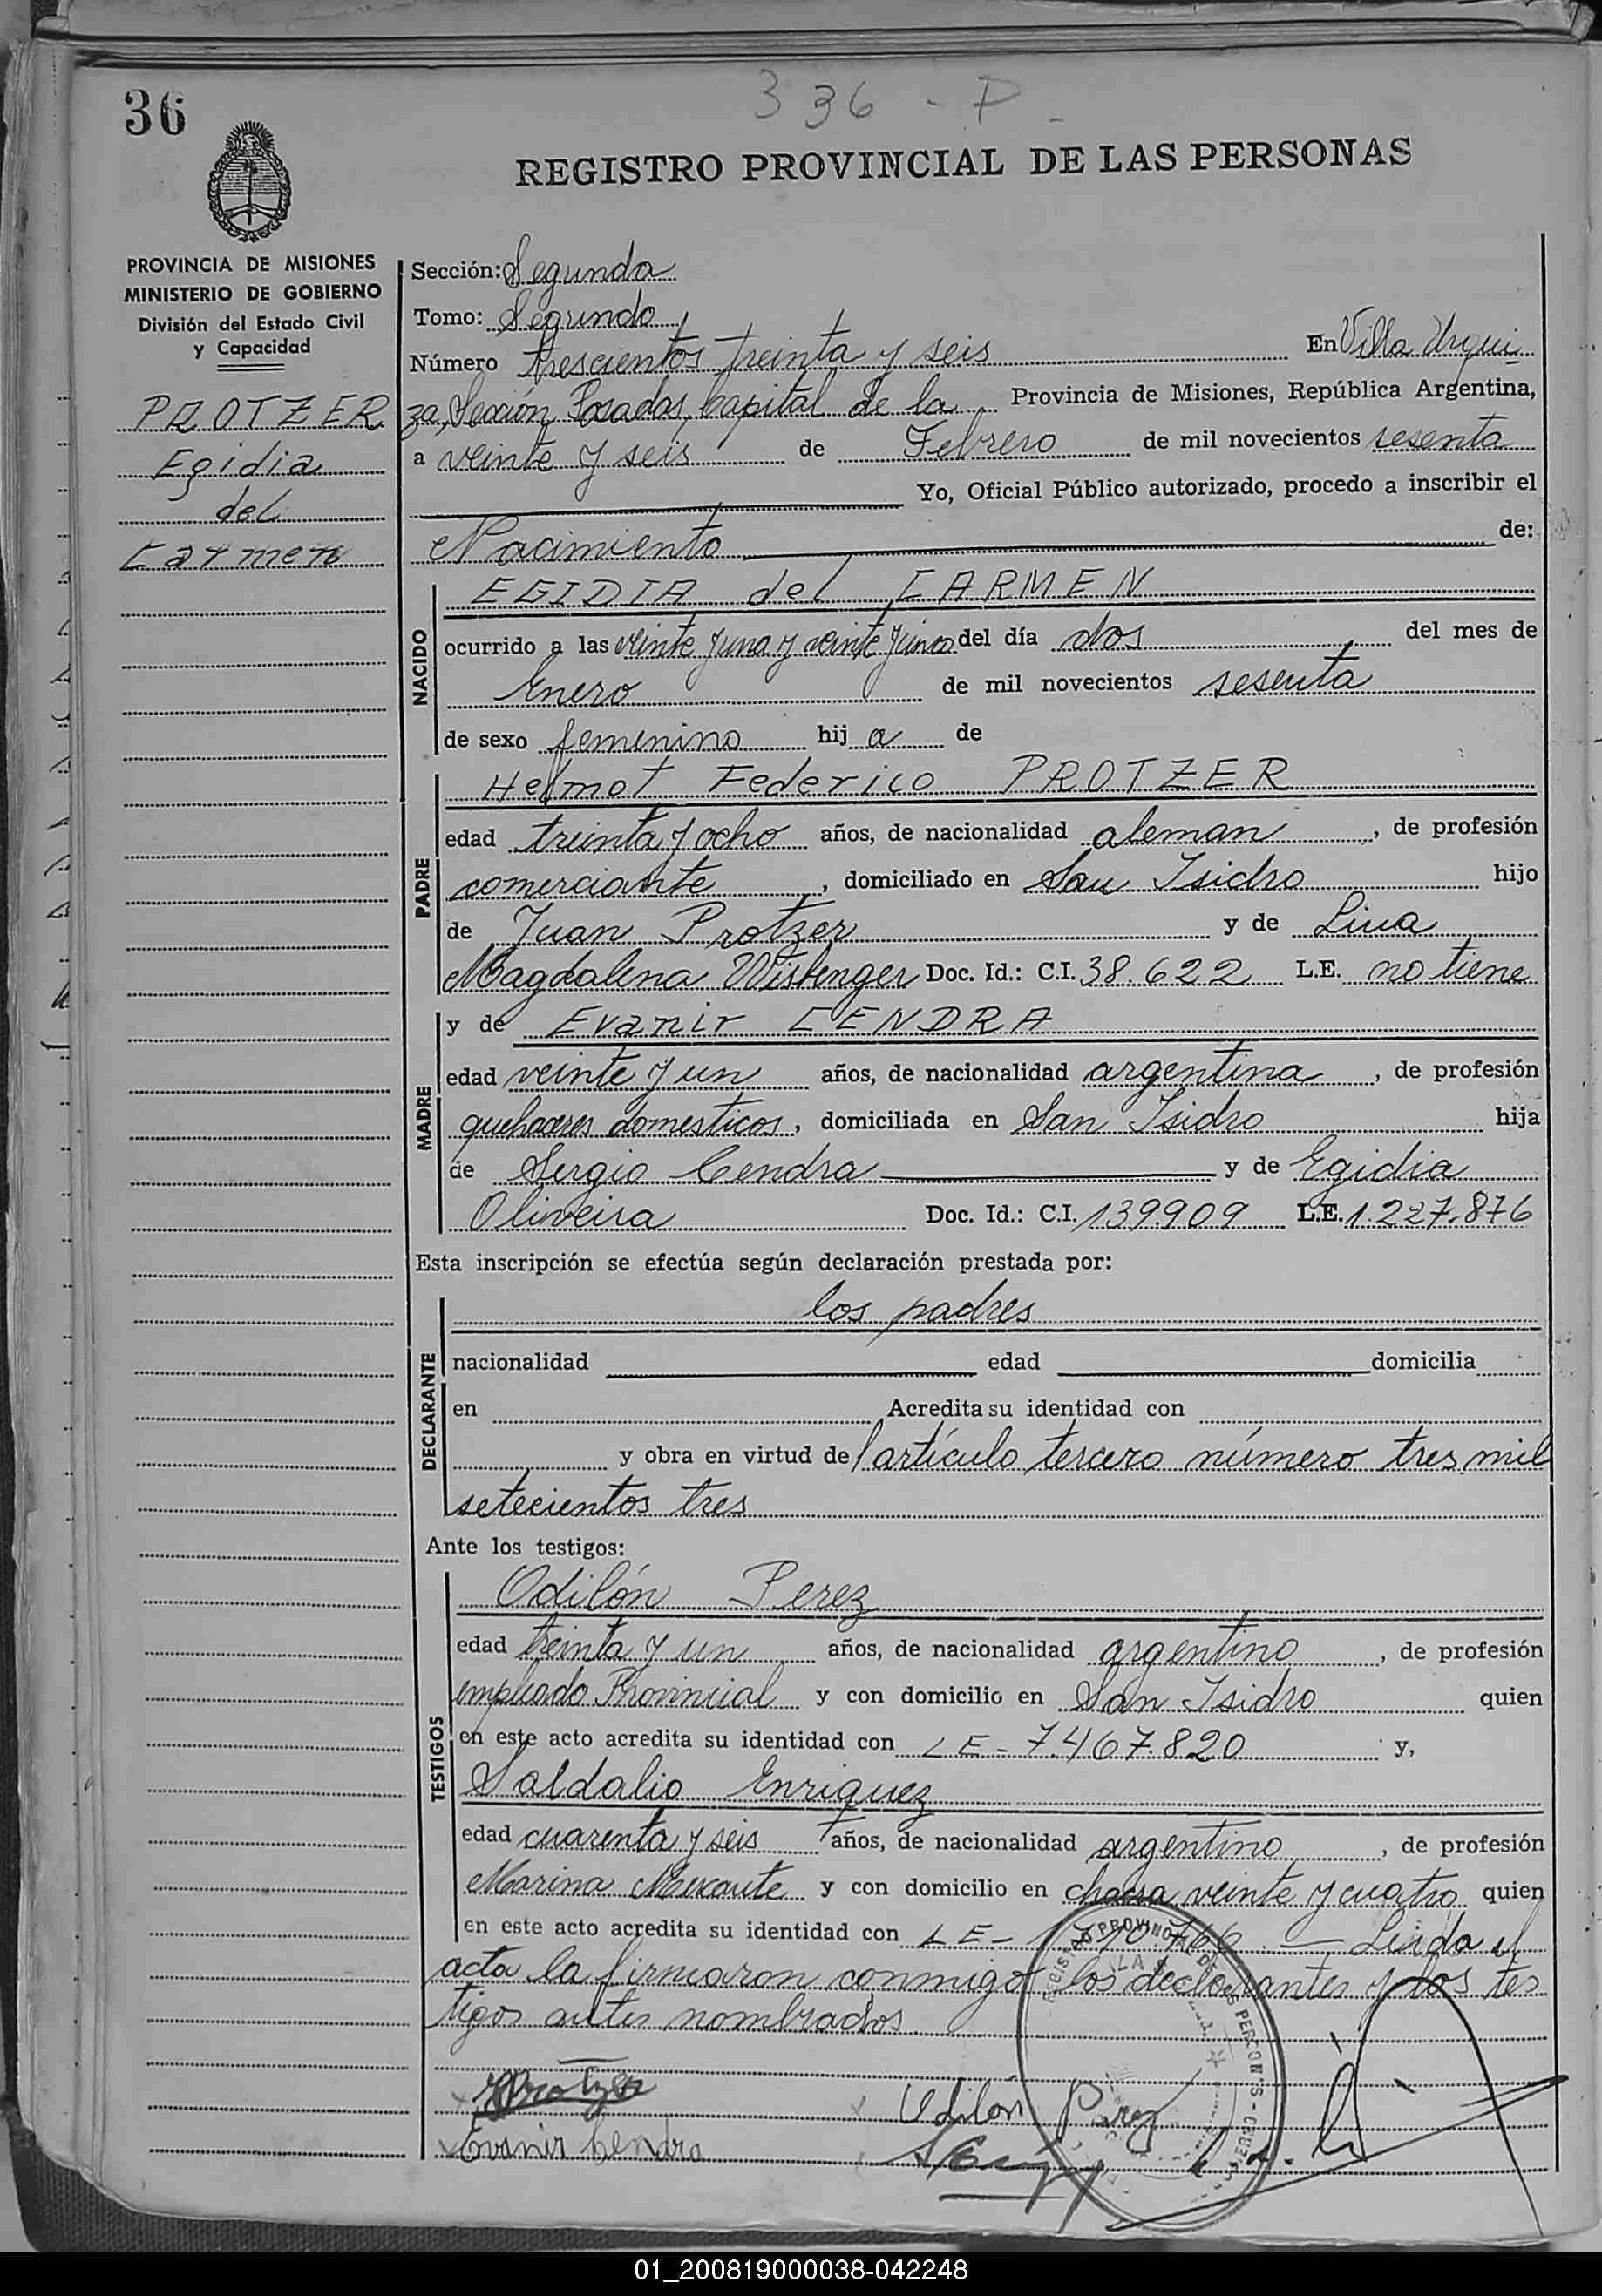 336 - P
36
REGISTRO PROVINCIAL DE LAS PERSONAS
PROVINCIA DE MISIONES
MINISTERIO DE GOBIERNO
División del Estado Civil
y Capacidad
PROTZER
Egidia
del
Carmen
Sección: Segunda
Tomo: Segundo
Número trescientos treinta y seis En Villa Urqui
za, Sección Posadas, Capital de la Provincia de Misiones, República Argentina,
a veinte y seis de Febrero de mil novecientos sesenta
Yo, Oficial Público autorizado, procedo a inscribir el
Nacimiento de:
NACIDO
EGIDIA del CARMEN
ocurrido a las veinte y una y veinte y cinco del día dos del mes de
Enero de mil novecientos sesenta
de sexo femenino hij a de
PADRE
Helmot Federico PROTZER
edad treinta y ocho años, de nacionalidad aleman, de profesión
comerciante, domiciliado en San Isidro hijo
de Juan Protzer y de Lina
Magdalena Doc. Id.: C.I. 38.622 L.E. no tiene
MADRE
y de Evanir CENDRA
edad veinte y un años, de nacionalidad argentina, de profesión
quehaceres domesticos, domiciliada en San Isidro hija
de Sergio Cendra y de Egidia
Oliveira Doc. Id.: C.I. 139909 L.E. 1.227.876
Esta inscripción se efectúa según declaración prestada por:
DECLARANTE
los padres
nacionalidad edad domicilia
en Acredita su identidad con
y obra en virtud de l artículo tercero número tres mil
setecientos tres
Ante los testigos:
TESTIGOS
Odilón Perez
edad treinta y un años, de nacionalidad argentino, de profesión
empleado Provincial y con domicilio en San Isidro quien
en este acto acredita su identidad con LE - 7.467.820 y,
Saldalio Enriquez
edad cuarenta y seis años, de nacionalidad argentino, de profesión
Marina Mercante y con domicilio en chacra veinte y cuatro quien
en este acto acredita su identidad con LE - Leida el
acta la firmaron conmigo los declarantes y los tes
tigos antes nombrados
Protzer
Odilón Perez
Evanir Cendra
01_200819000038-042248